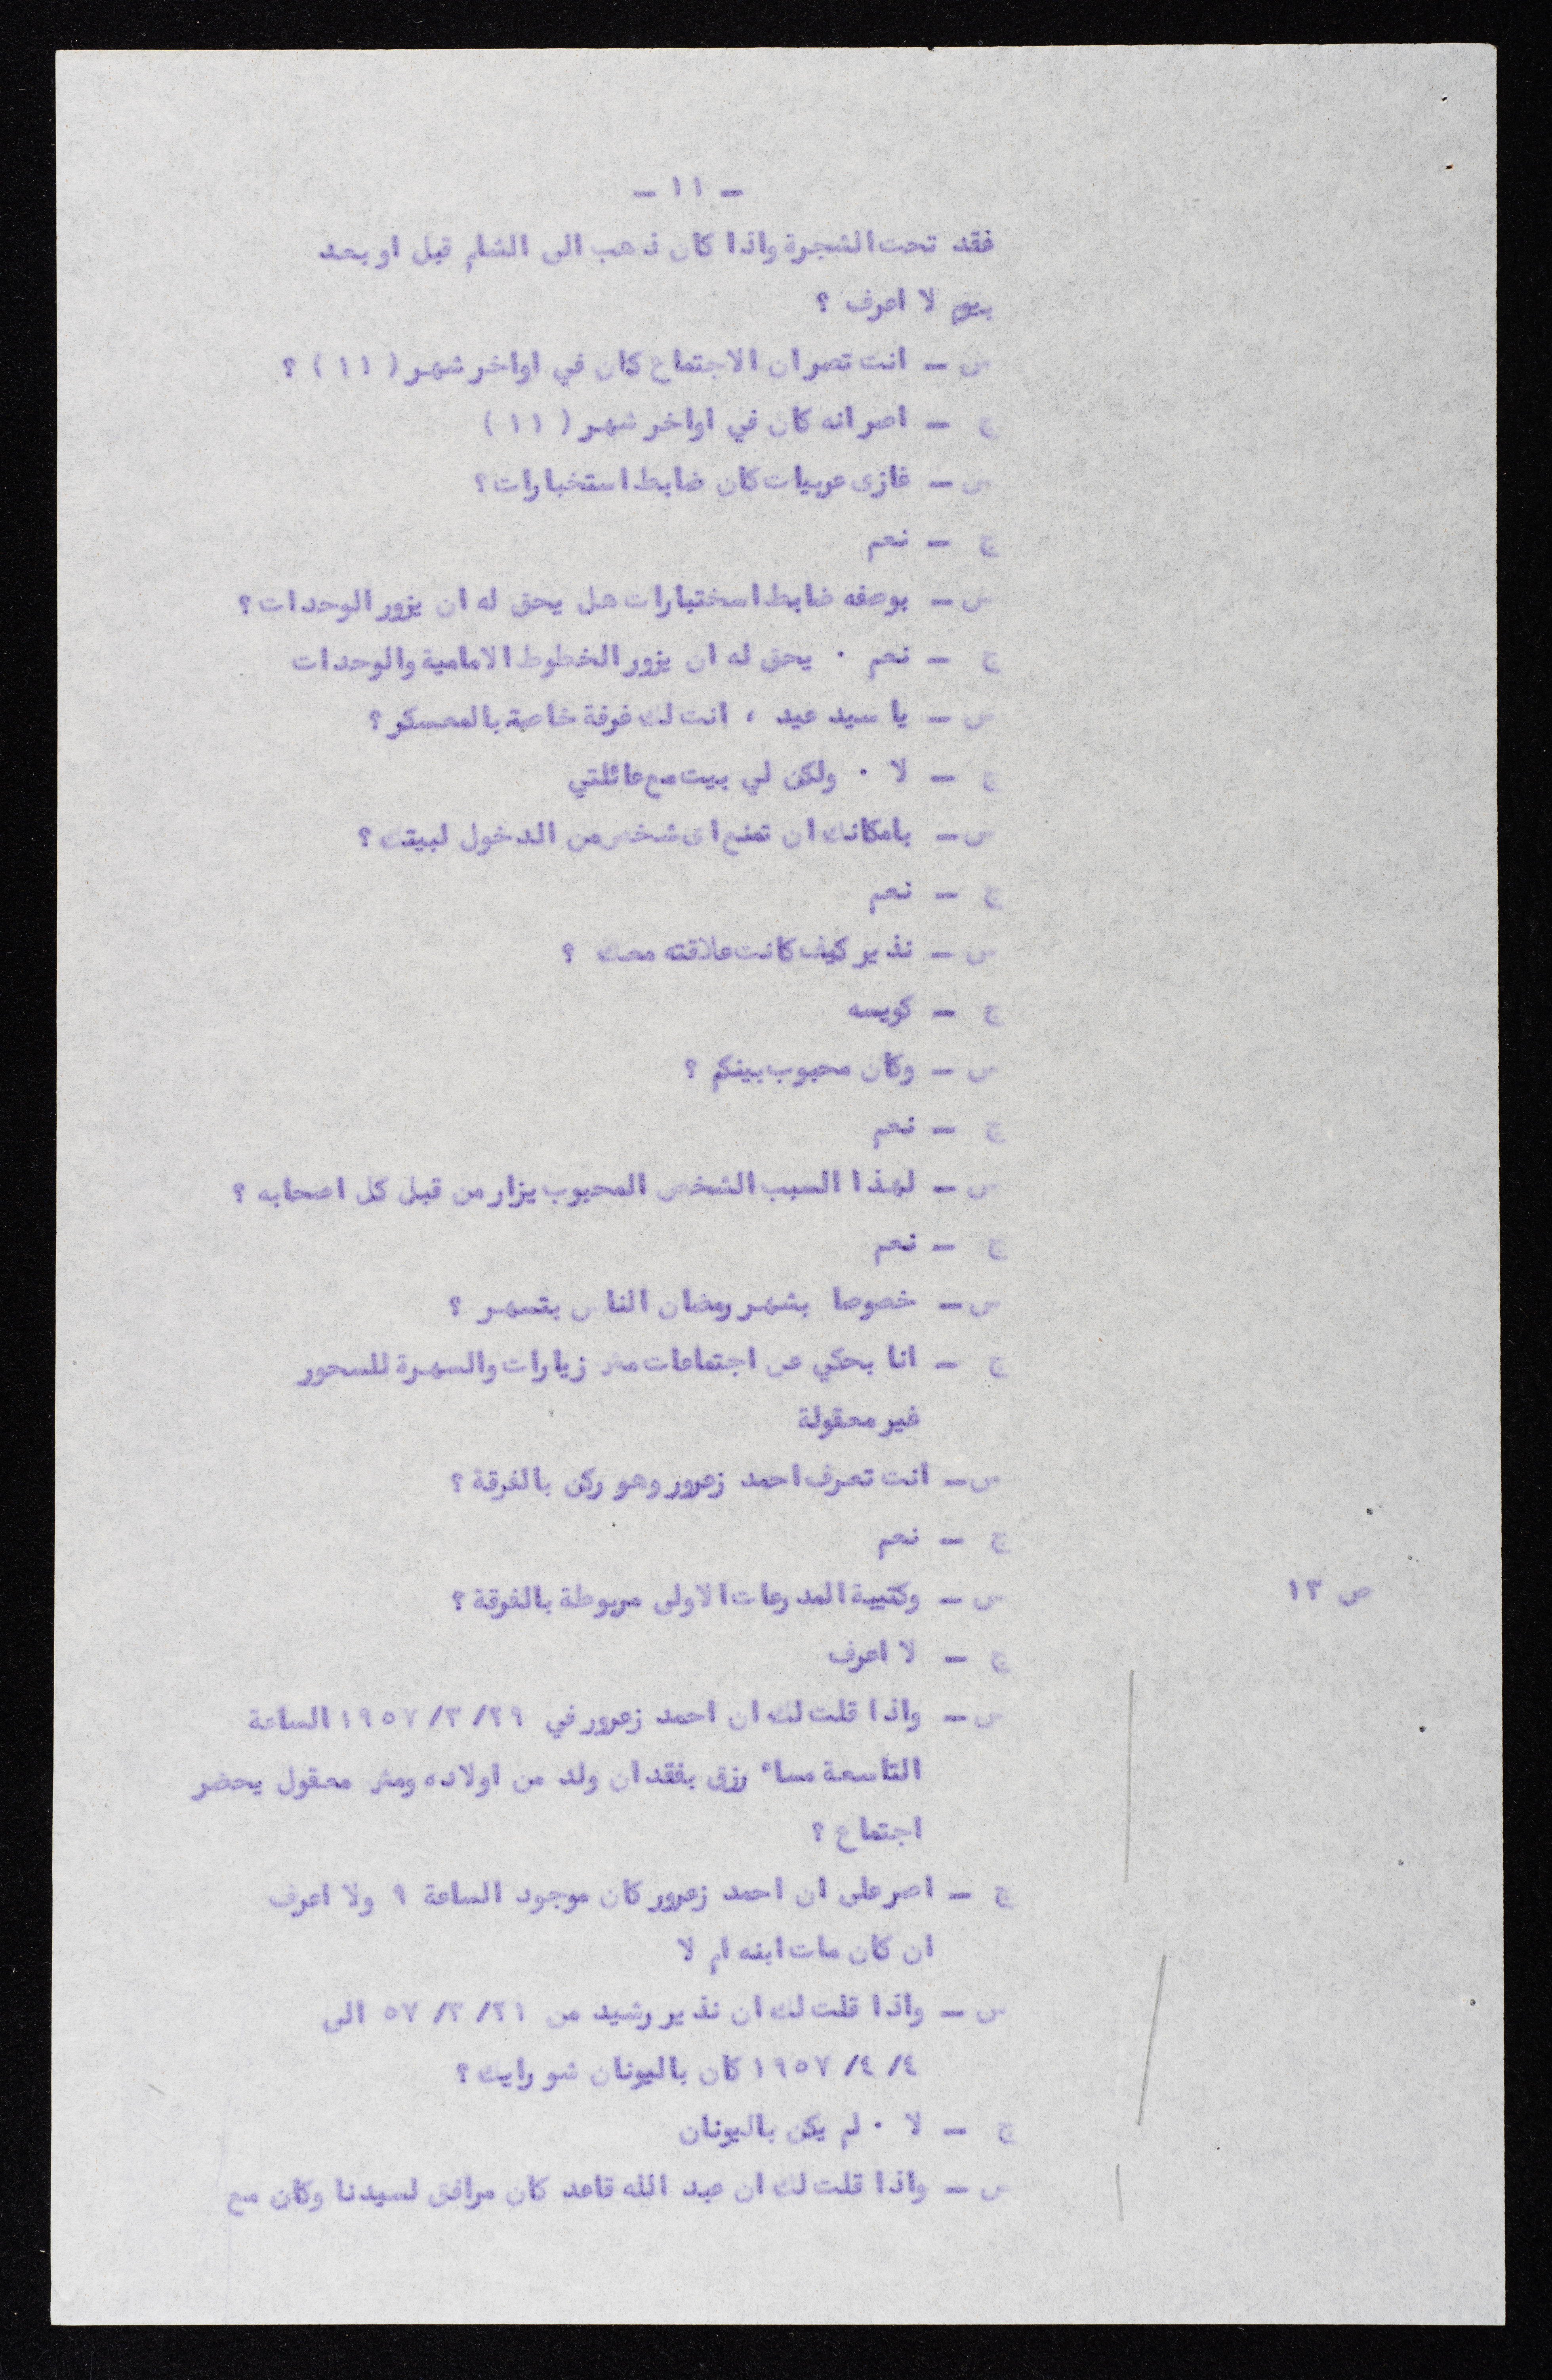 - ١١ -
فقد تحت الشجرة واذا كان ذهب الى الشام قبل او بعد
بيوم لا اعرف ؟
س - انت تصر ان الاجتماع كان في اواخر شهر ( ١١ ) ؟
ج - اصر انه كان في اواخر شهر ( ١١ )
س - غازى عربيات كان ضابط استخبارات ؟
ج - نعم
س - بوصفه ضابط استخبارات هل يحق له ان يزور الوحدات ؟
ج - نعم ٠ يحق له ان يزور الخطوط الامامية والوحدات
س - يا سيد عيد ، انت لك غرفة خاصة بالمعسكر ؟
ج - لا ٠ ولكن لي بيت مع عائلتي
س - بامكانك ان تمنع اى شخص من الدخول لبيتك ؟
ج - نعم
س - نذير كيف كانت علاقته معك ؟
ج - كويسه
س - وكان محبوب بينكم ؟
ج - نعم
س - لهذا السبب الشخص المحبوب يزار من قبل كل اصحابه ؟
ج - نعم
س - خصوصا بشهر رمضان الناس بتسهر ؟
ج - انا بحكي عن اجتماعات مش زيارات والسهرة للسحور
غير معقولة
س - انت تعرف احمد زعرور وهو ركن بالفرقة ؟
ج - نعم
ص ١٣ س - وكتيبة المدرعات الاولى مربوطة بالفرقة ؟
ج - لا اعرف
س - واذا قلت لك ان احمد زعرور في ٢٩/ ٣/ ١٩٥٧ الساعة
التاسعة مساء رزق بفقدان ولد من اولاده ومش معقول يحضر
اجتماع ؟
ج - اصر على ان احمد زعرور كان موجود الساعة ٩ ولا اعرف
ان كان مات ابنه ام لا
س - واذا قلت لك ان نذير رشيد من ٢١/ ٣/ ٥٧ الى
٤/ ٤/ ١٩٥٧ كان باليونان شو رايك ؟
ج - لا ٠ لم يكن باليونان
س - واذا قلت لك ان عبد الله قاعد كان مرافق لسيدنا وكان مع